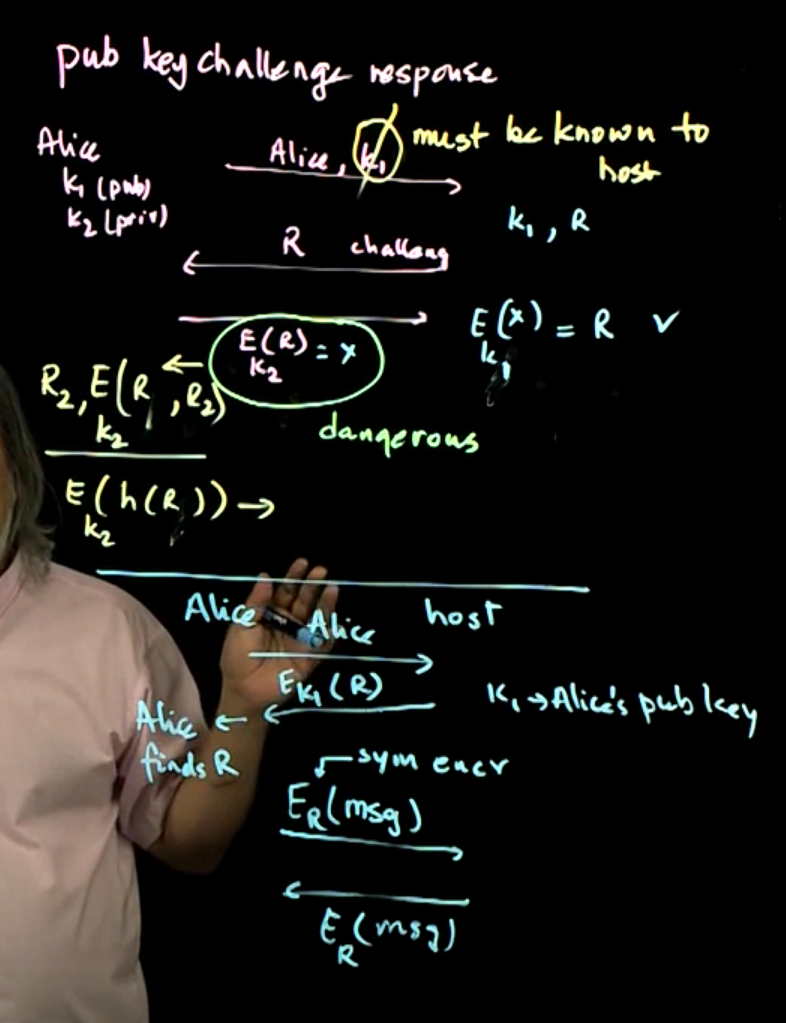 pub key challenge response
Alice
k1 (pub)
k2 (priv)
Alice, k1
must be known to
host
k1, R
R challeng
E k2 (R) = x
E k1 (x) = R ✓
R2, E k2 (R, R2) ←
dangerous
E k2 (h(R)) →
Alice host
Alice
E k1 (R)
k1 → Alice's pub key
Alice ←
finds R
sym encr
E R (msg)
E R (msg)